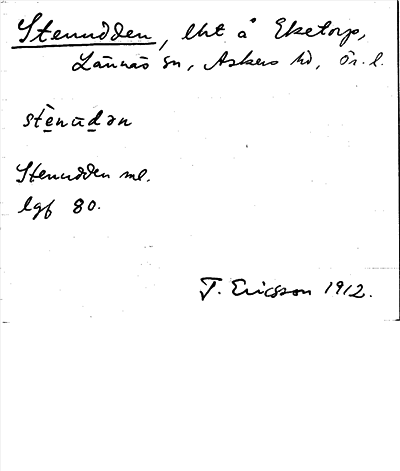 Stenudden, lht å Eketorp,
Lännäs sn, Askers hd, Ör. l.
stènudən
Stenudden ml.
lgf 80.
T. Ericsson 1912.